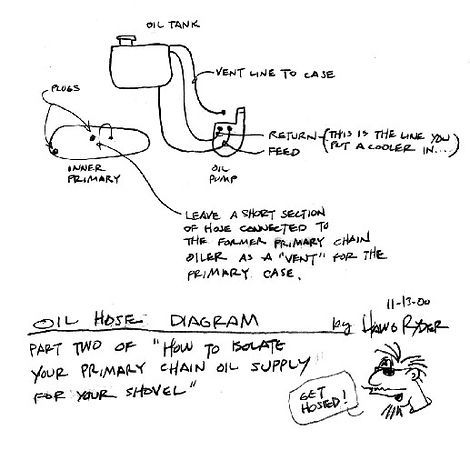 OIL TANK
VENT LINE TO CASE
PLUGS
RETURN-(THIS IS THE LINE YOU
PUT A COOLER IN....)
FEED
INNER
PRIMARY
OIL
PUMP
LEAVE A SHORT SECTION
OF HOSE CONNECTED TO
THE FORMER PRIMARY CHAIN
OILER AS A "VENT" FOR THE
PRIMARY CASE.
11-13-00
OIL HOSE DIAGRAM by HAWG RYDER
PART TWO OF "HOW TO ISOLATE
YOUR PRIMARY CHAIN OIL SUPPLY
FOR YOUR SHOVEL"
GET
HOSED!